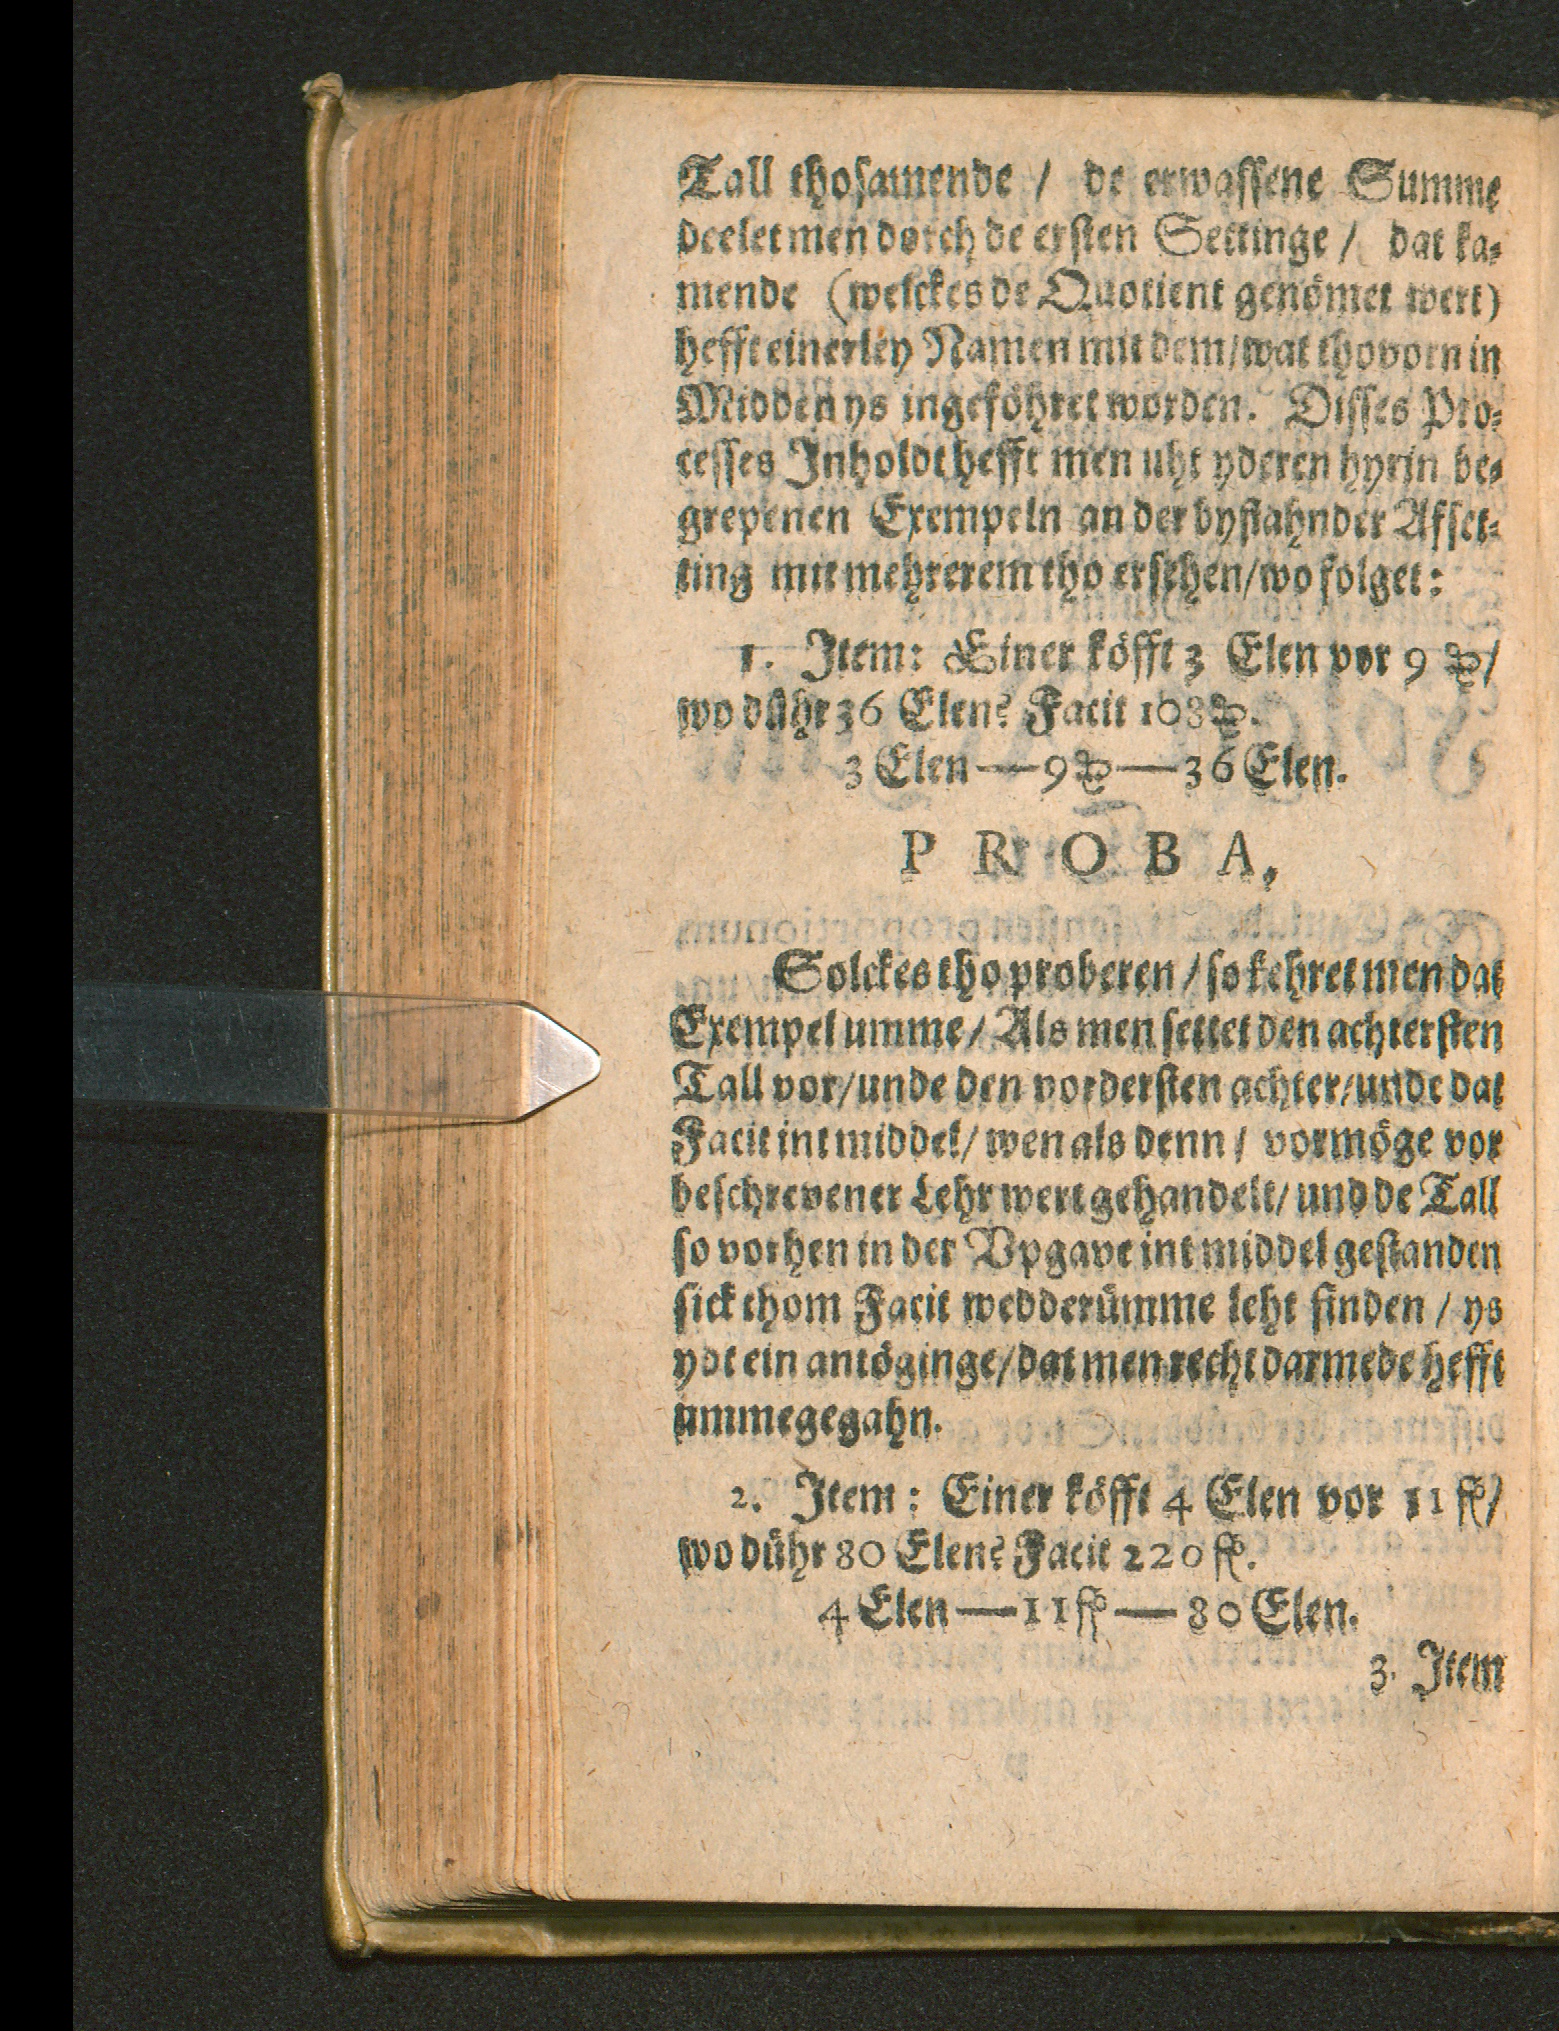 Tall thosamende / de erwassene Summe
deelet men dorch de ersten Settinge / dat ka-
mende (welckes de Quotient genömet wert)
hefft einerley Namen mit dem/wat thovorn in
Midden ys ingeföhret worden. Disses Pro-
cesses Inholdt hefft men uht yderen hyrin be-
grepenen Exempeln an der bystahnder Afset-
ting mit mehrerem tho ersehen/wo folget:
1. Item: Einer köfft 3 Elen vor 9 ₰/
wo dühr 36 Elen? Facit 108 ₰.
3 Elen — 9 ₰ — 36 Elen.
PROBA,
Solckes tho proberen / so kehret men dat
Exempel umme / Als men settet den achtersten
Tall vor/unde den vordersten achter/unde dat
Facit int middel/ wen als denn / vormöge vor
beschrevener Lehr wert gehandelt/ und de Tall
so vorhen in der Vpgave int middel gestanden
sick thom Facit wedderümme leht finden / ys
ydt ein antöginge/dat men recht darmede hefft
ümmegegahn.
2. Item: Einer köfft 4 Elen vor 11 ß/
wo dühr 80 Elen? Facit 220 ß.
4 Elen — 11 ß — 80 Elen.
3. Item